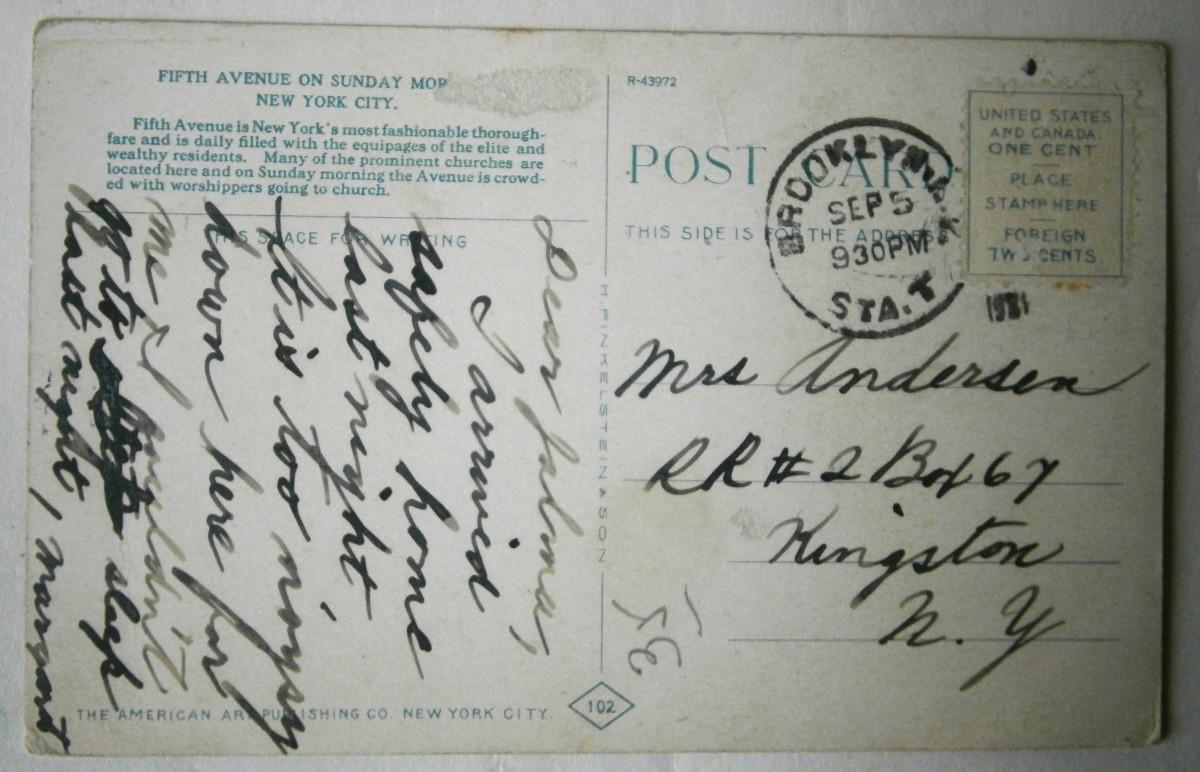 FIFTH AVENUE ON SUNDAY MOR
NEW YORK CITY.
Fifth Avenue is New York's most fashionable thorough-
fare and is daily filled with the equipages of the elite and
wealthy residents. Many of the prominent churches are
located here and on Sunday morning the Avenue is crowd-
ed with worshippers going to church.
THIS SPACE FOR WRITING
Dear Salma,
I arrived
safely home
last night.
It is too noysy
down here for
me I couldn't
go to sleep
last night, Margaret
THE AMERICAN ART PUBLISHING CO. NEW YORK CITY.
H. FINKELSTEIN & SON
102
R-43972
POST CARD
THIS SIDE IS FOR THE ADDRESS
BROOKLYN, N.Y.
SEP 5
930PM
STA. T
UNITED STATES
AND CANADA
ONE CENT
PLACE
STAMP HERE
FOREIGN
TWO CENTS
Mrs Andersen
RR #2 Box 67
Kingston
N. Y